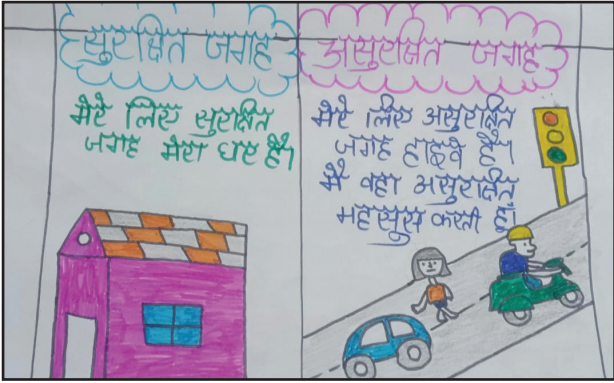 सुरक्षित जगह
मेरे लिए सुरक्षित
जगह मेरा घर है।
असुरक्षित जगह
मेरे लिए असुरक्षित
जगह हाइवे है।
मै वहा असुरक्षित
महसुस करती हुँ